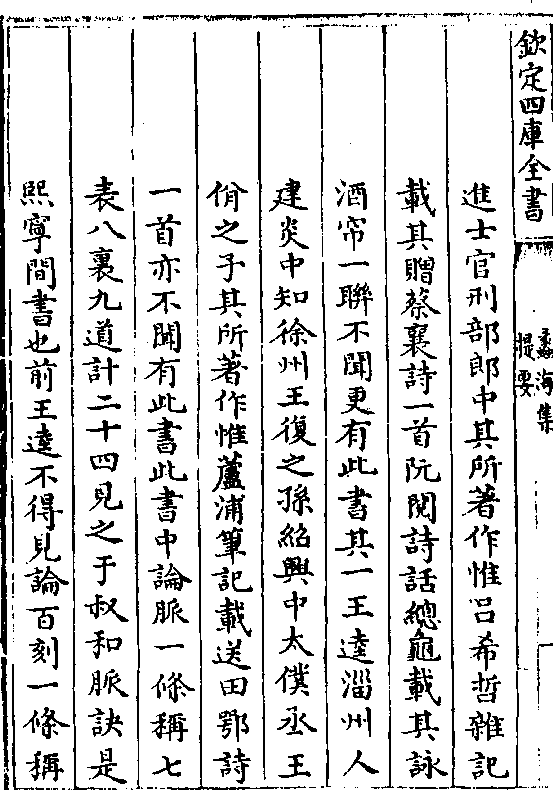 欽定四庫全書
蠡海集
提要
進士官刑部郎中其所著作惟呂希哲雜記
載其贈蔡襄詩一首阮閱詩話總龜載其詠
酒帘一聯不聞更有此書其一王逵淄州人
建炎中知徐州王復之孫紹興中太僕丞王
佾之子其所著作惟蘆浦筆記載送田鄂詩
一首亦不聞有此書此書中論脈一條稱七
表八裏九道計二十四見之于叔和脈訣是
熙寧間書也前王逵不得見論百刻一條稱